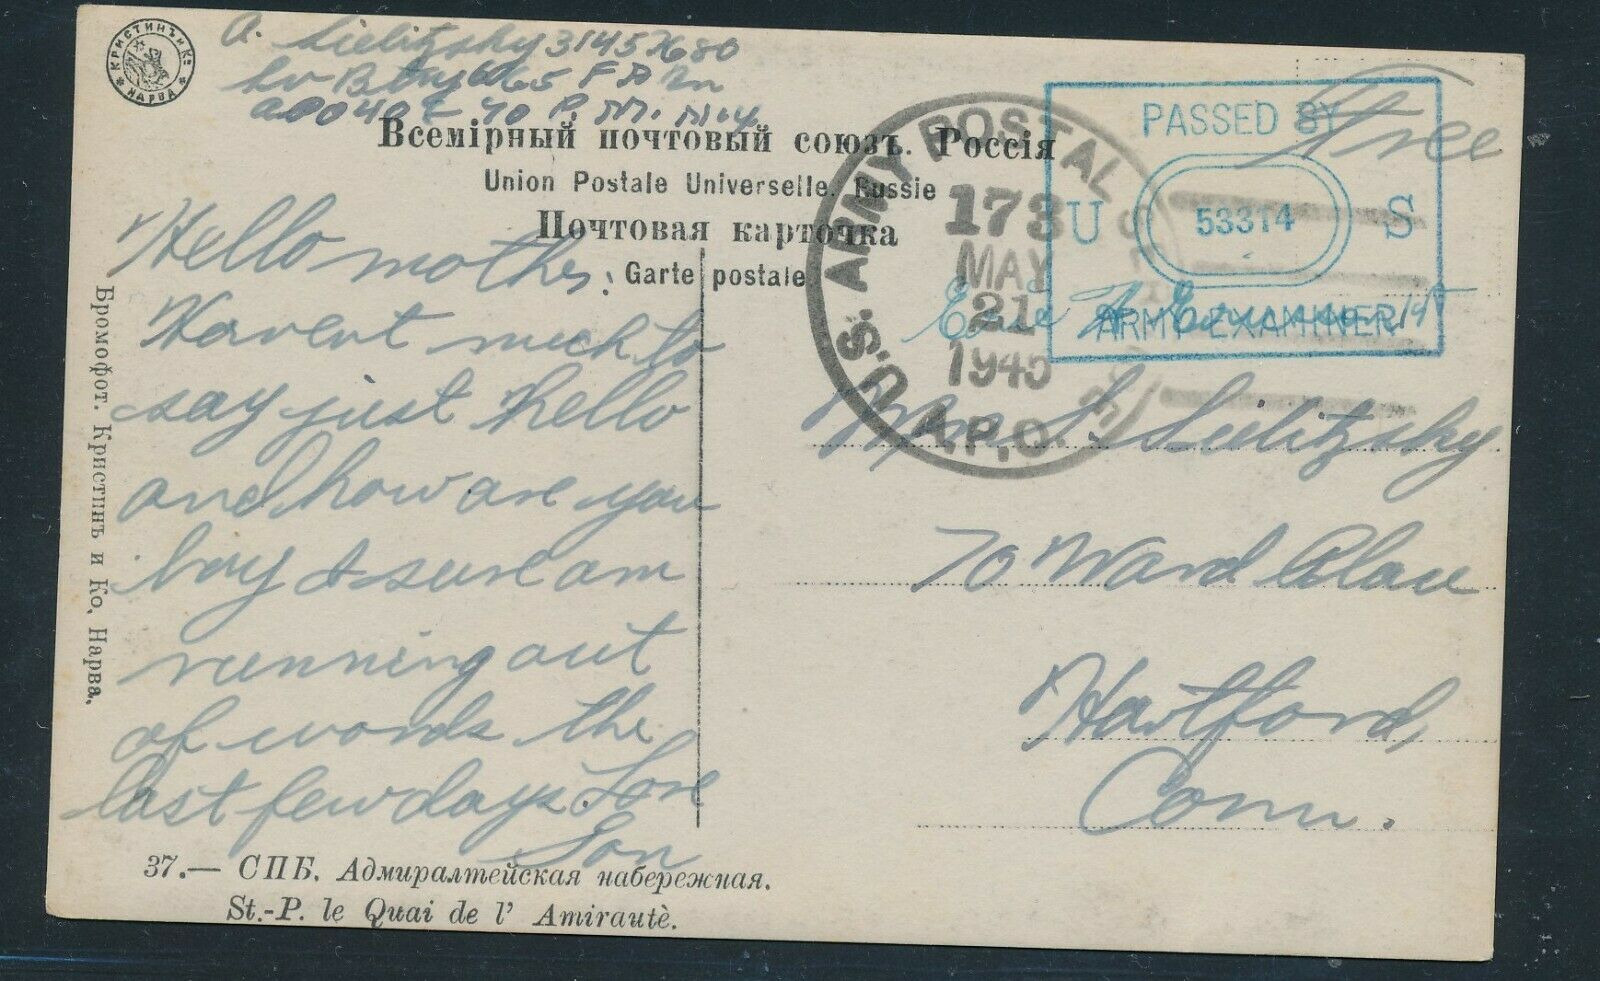 КРИСТИНЪ и Ко НАРВА
A. Sielitzsky
F A Bn
P.M. N.Y.
Free
Всемірный почтовый союзъ. Россія
Union Postale Universelle. Russie
Почтовая карточка
Carte postale
U.S. ARMY POSTAL
A.P.O.
173
MAY
21
1945
PASSED BY
U 53314 S
ARMY EXAMINER
Hello mother,
Havent much to
say just hello
and how are you
boy I sure am
running out
of words the
last few days. Love
Son
Mrs S. Sielitzsky
70 Ward Place
Hartford,
Conn.
Бромофот. Кристинъ и Ко, Нарва.
37.— СПБ. Адмиралтейская набережная.
St.-P. le Quai de l' Amirautè.